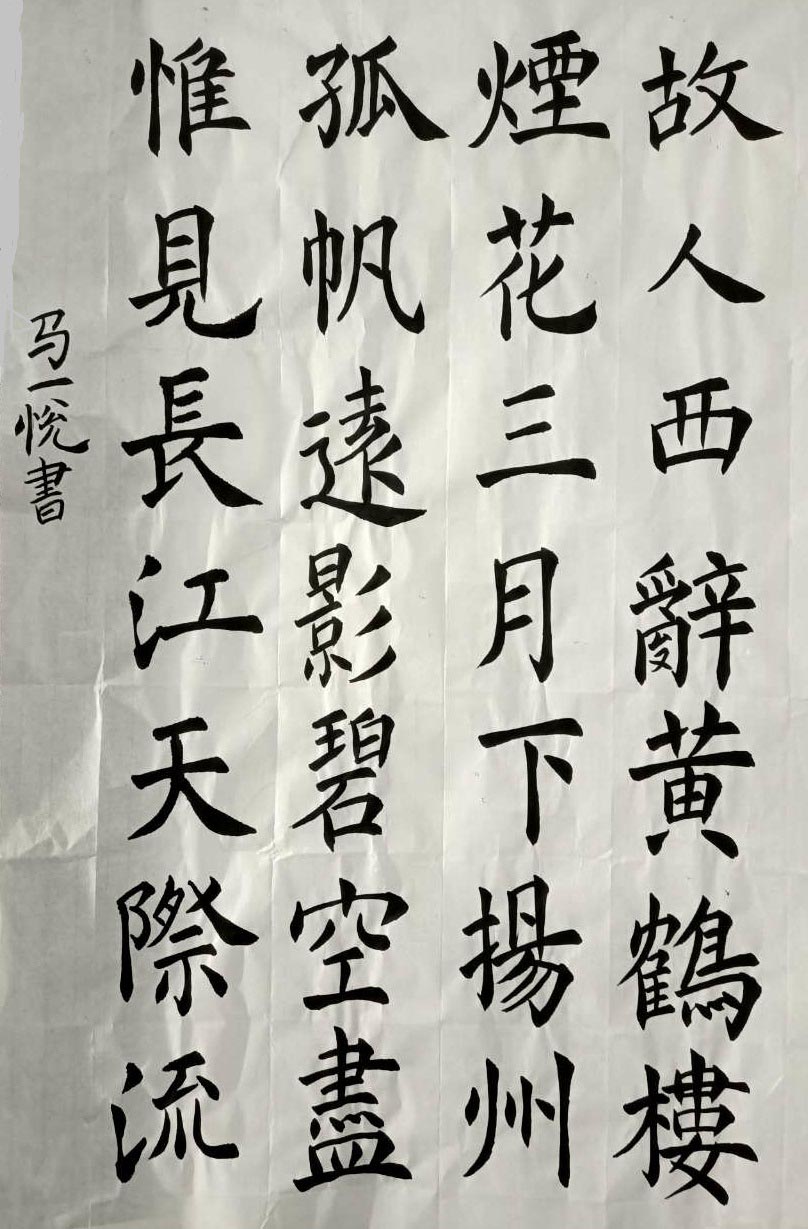 故人西辭黃鶴樓
煙花三月下揚州
孤帆遠影碧空盡
惟見長江天際流
马一悦書